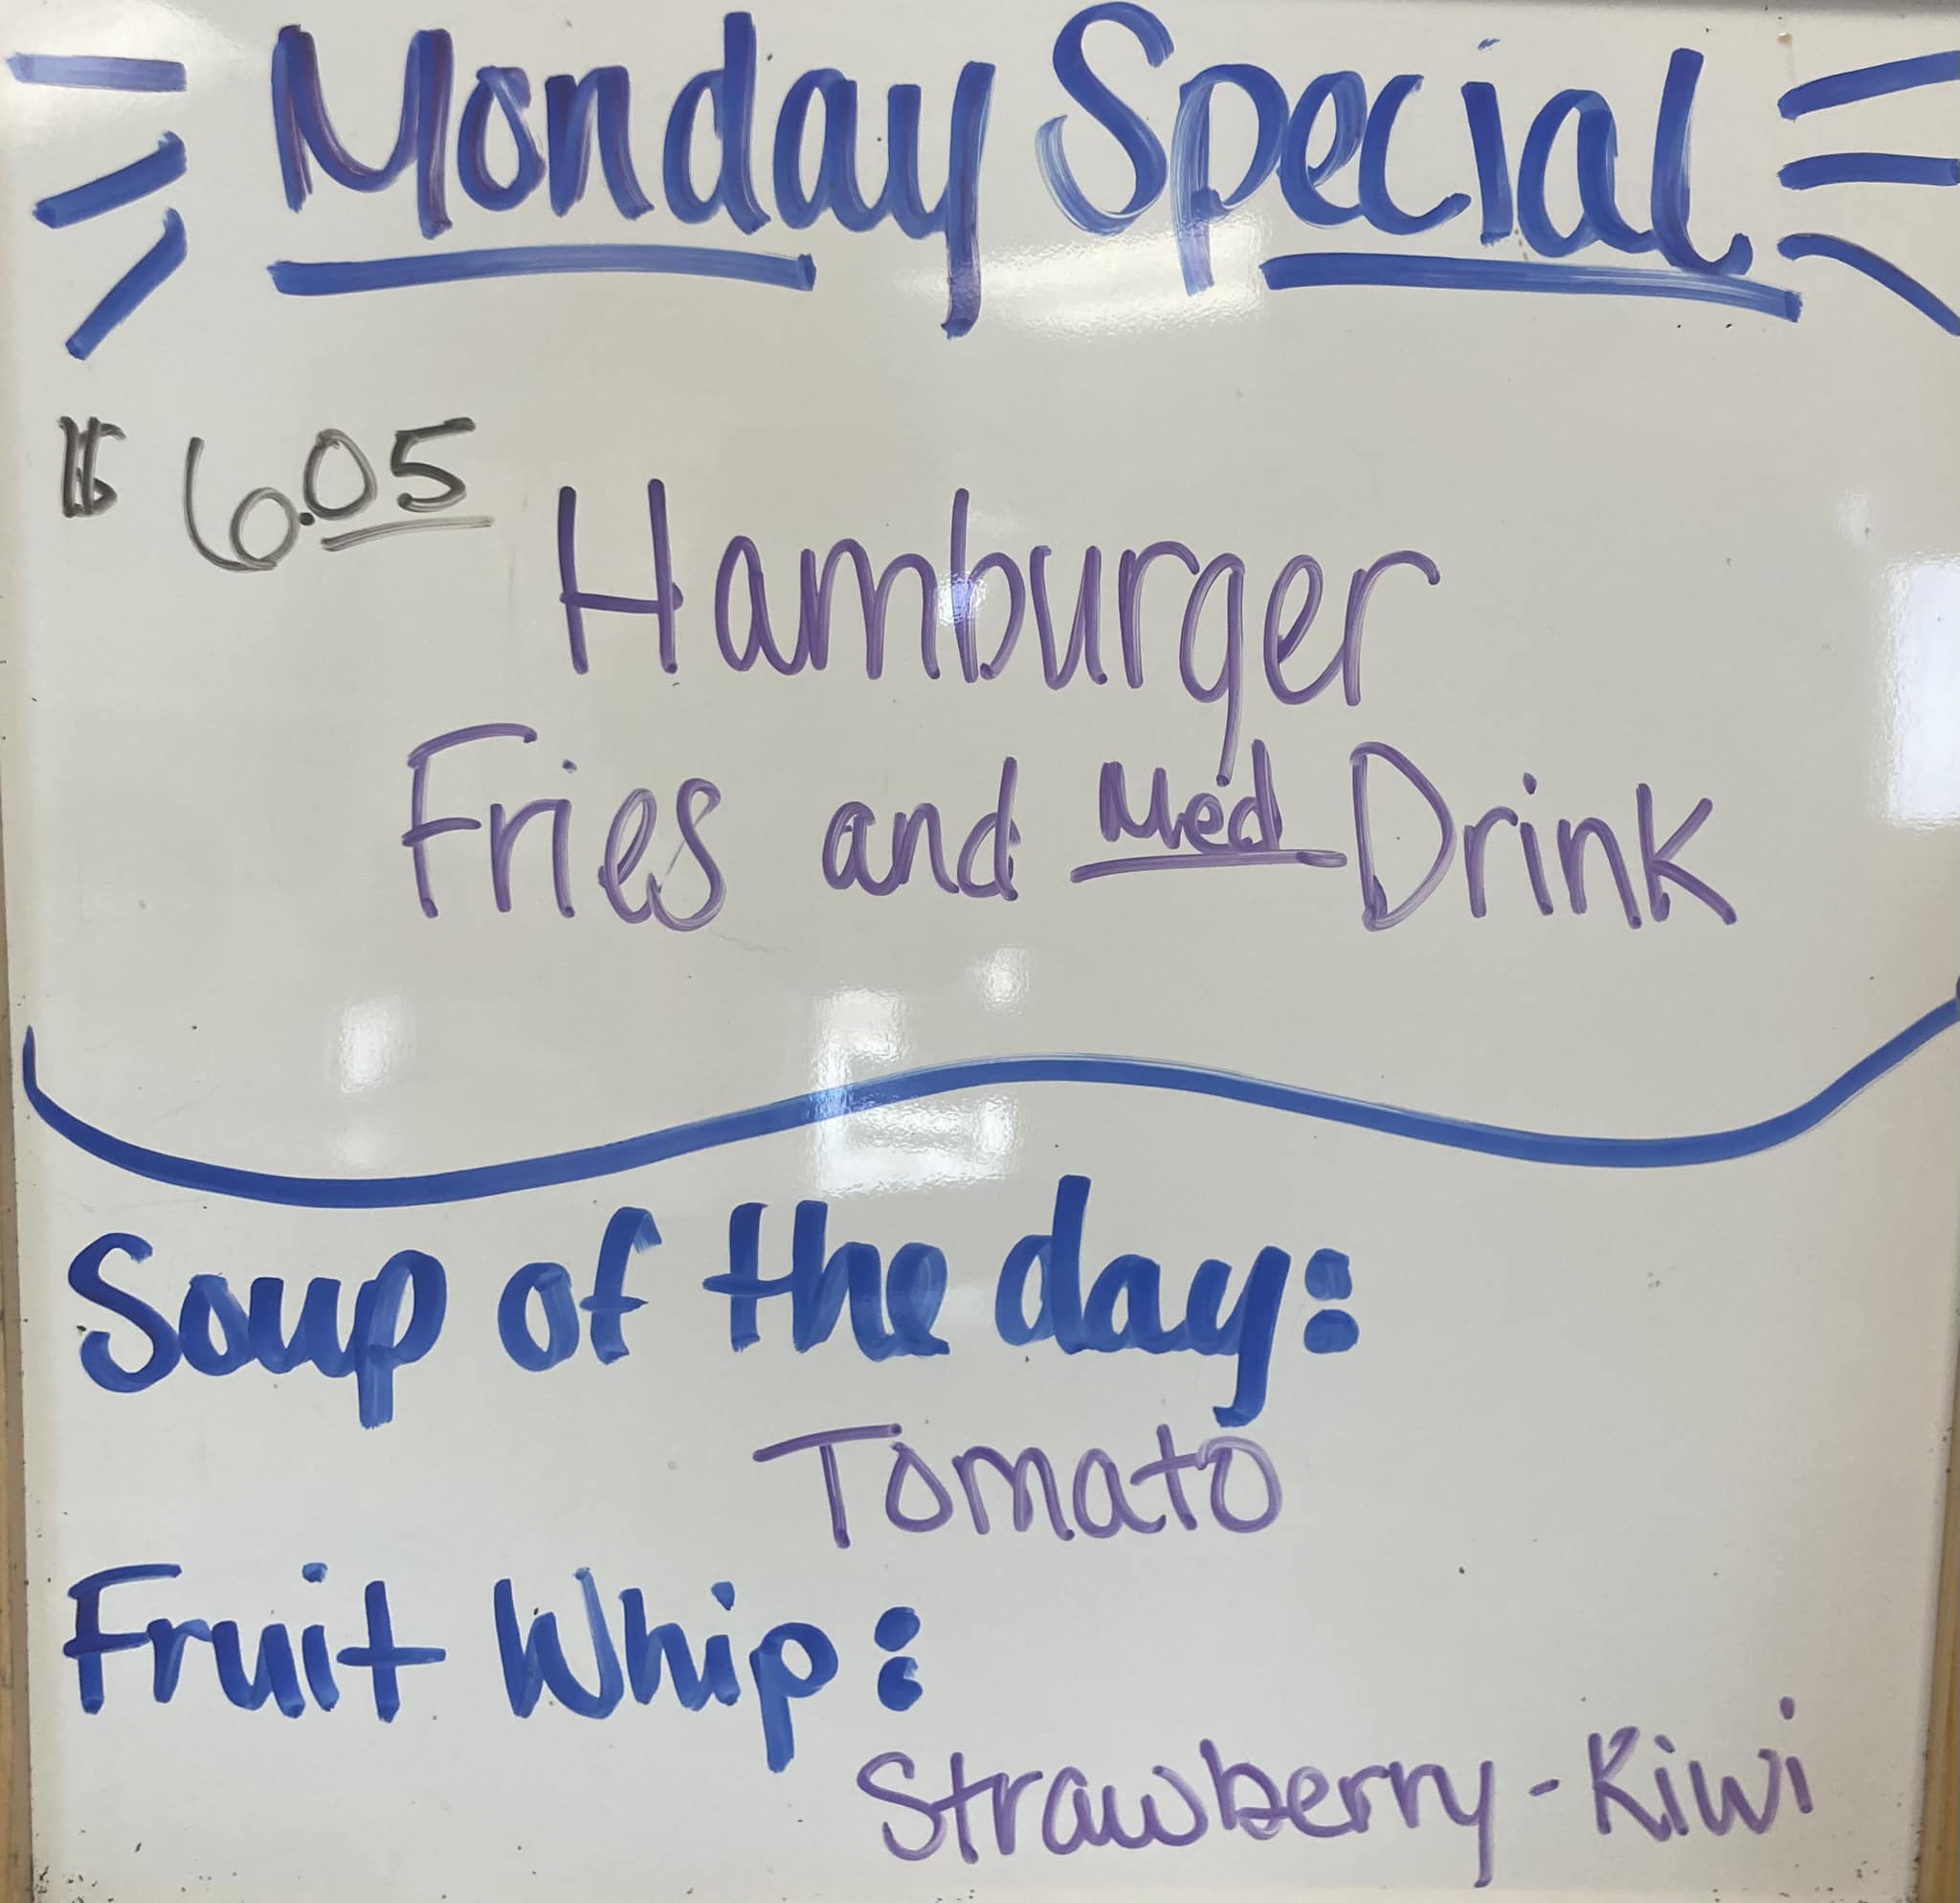 Monday Special
$ 6.05
Hamburger
Fries and Med Drink
Soup of the day:
Tomato
Fruit Whip:
Strawberry - Kiwi